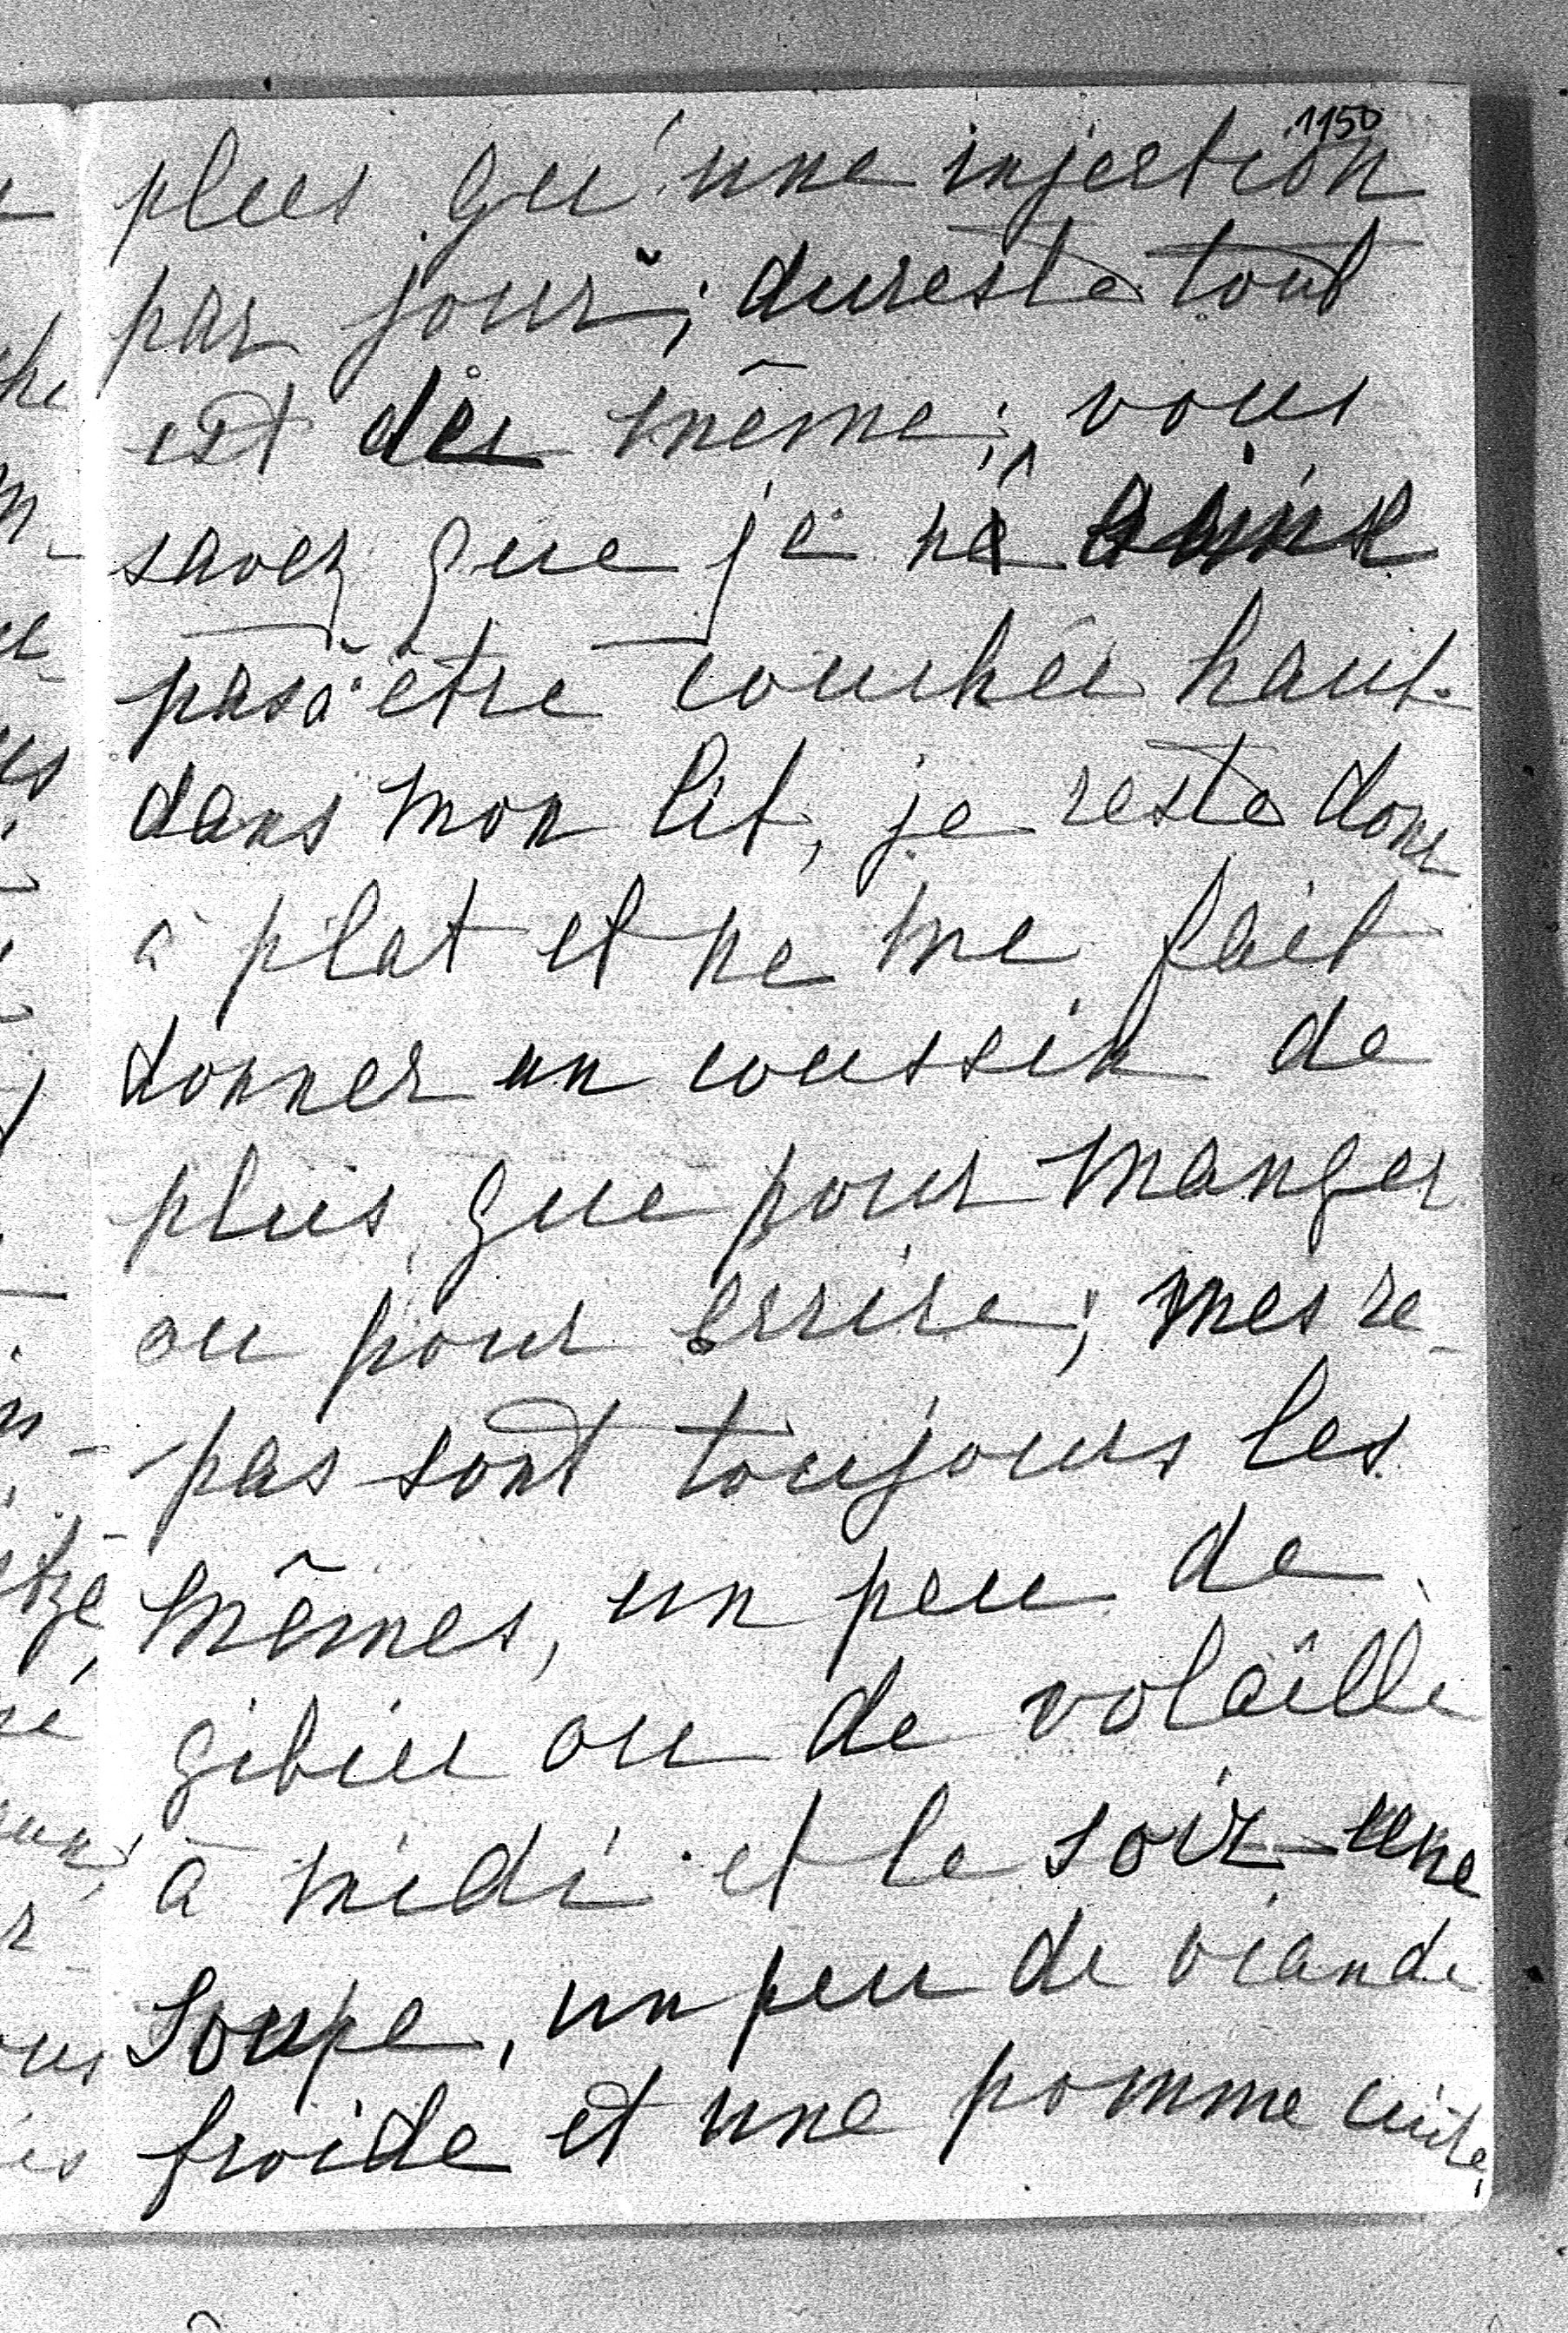 1150
plus qu'une injection
par jour; dureste tout
est de même; vous
savez que je n'aime
pas à être couchée haut
dans mon lit, je reste donc
à plat et ne me fait
donner un coussin de
plus que pour manger
ou pour ecrire; mes re-
pas sont toujours les
mêmes, un peu de
gibier ou de volaille
à midi et le soir une
soupe, un peu de viande
froide et une pomme cuite,